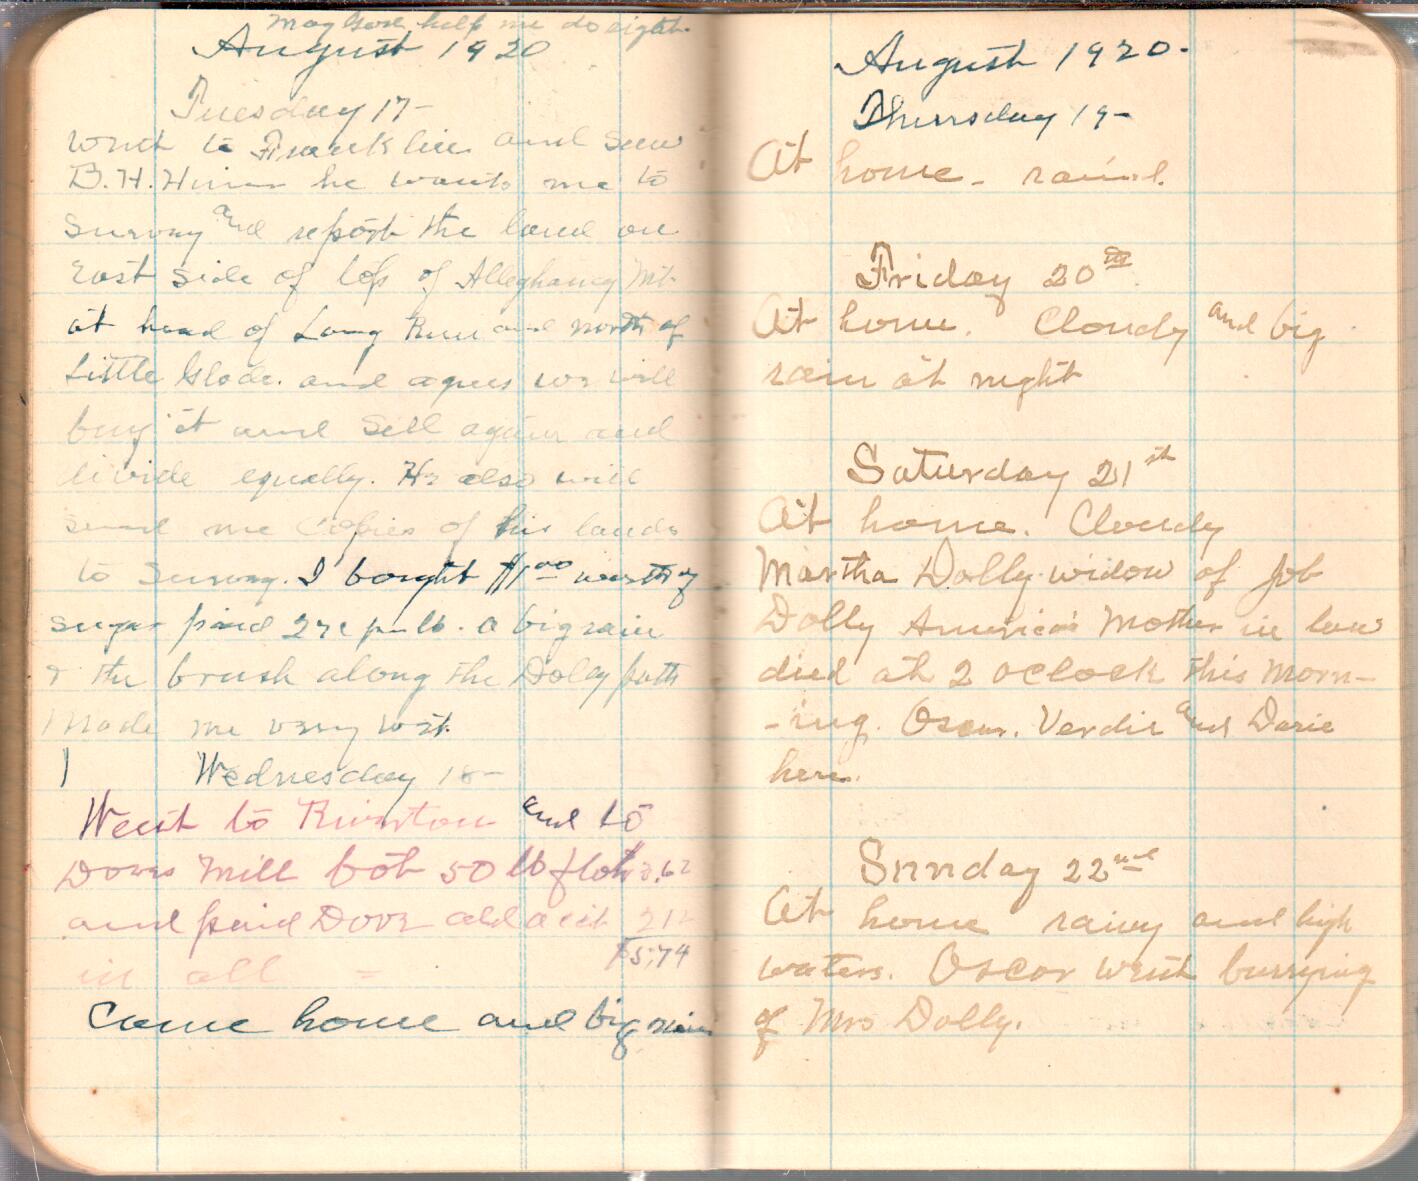 May God help me do right.
August 1920
Tuesday 17-
Went to Franklin and seen
B. H. Hiner he wants me to
Survey and report the land on
East side of top of Alleghany Mt.
at head of Long Run and north of
Little Glade. and agrees we will
buy it and sell again and
divide equally. He also will
send me Copies of his lands
to Survey. I bought $1.00 worth of
sugar paid 27c per lb. a big rain
& the brush along the Dolly path
Made me very wet.
Wednesday 18-
Went to Riverton and to
Doves Mill bot 50 lb flour 3.62
and paid Dove old acct 212
in all = $5.74
Came home and big rain
August 1920.
Thursday 19-
At home - raind.
Friday 20th
At home. Cloudy and big
rain at night
Saturday 21st
At home. Cloudy
Martha Dolly widow of Job
Dolly America's Mother in law
died at 2 oclock this Morn-
-ing. Oscar, Verdie and Darie
here.
Sunday 22nd
At home rainy and high
waters. Oscar went burrying
of Mrs Dolly.